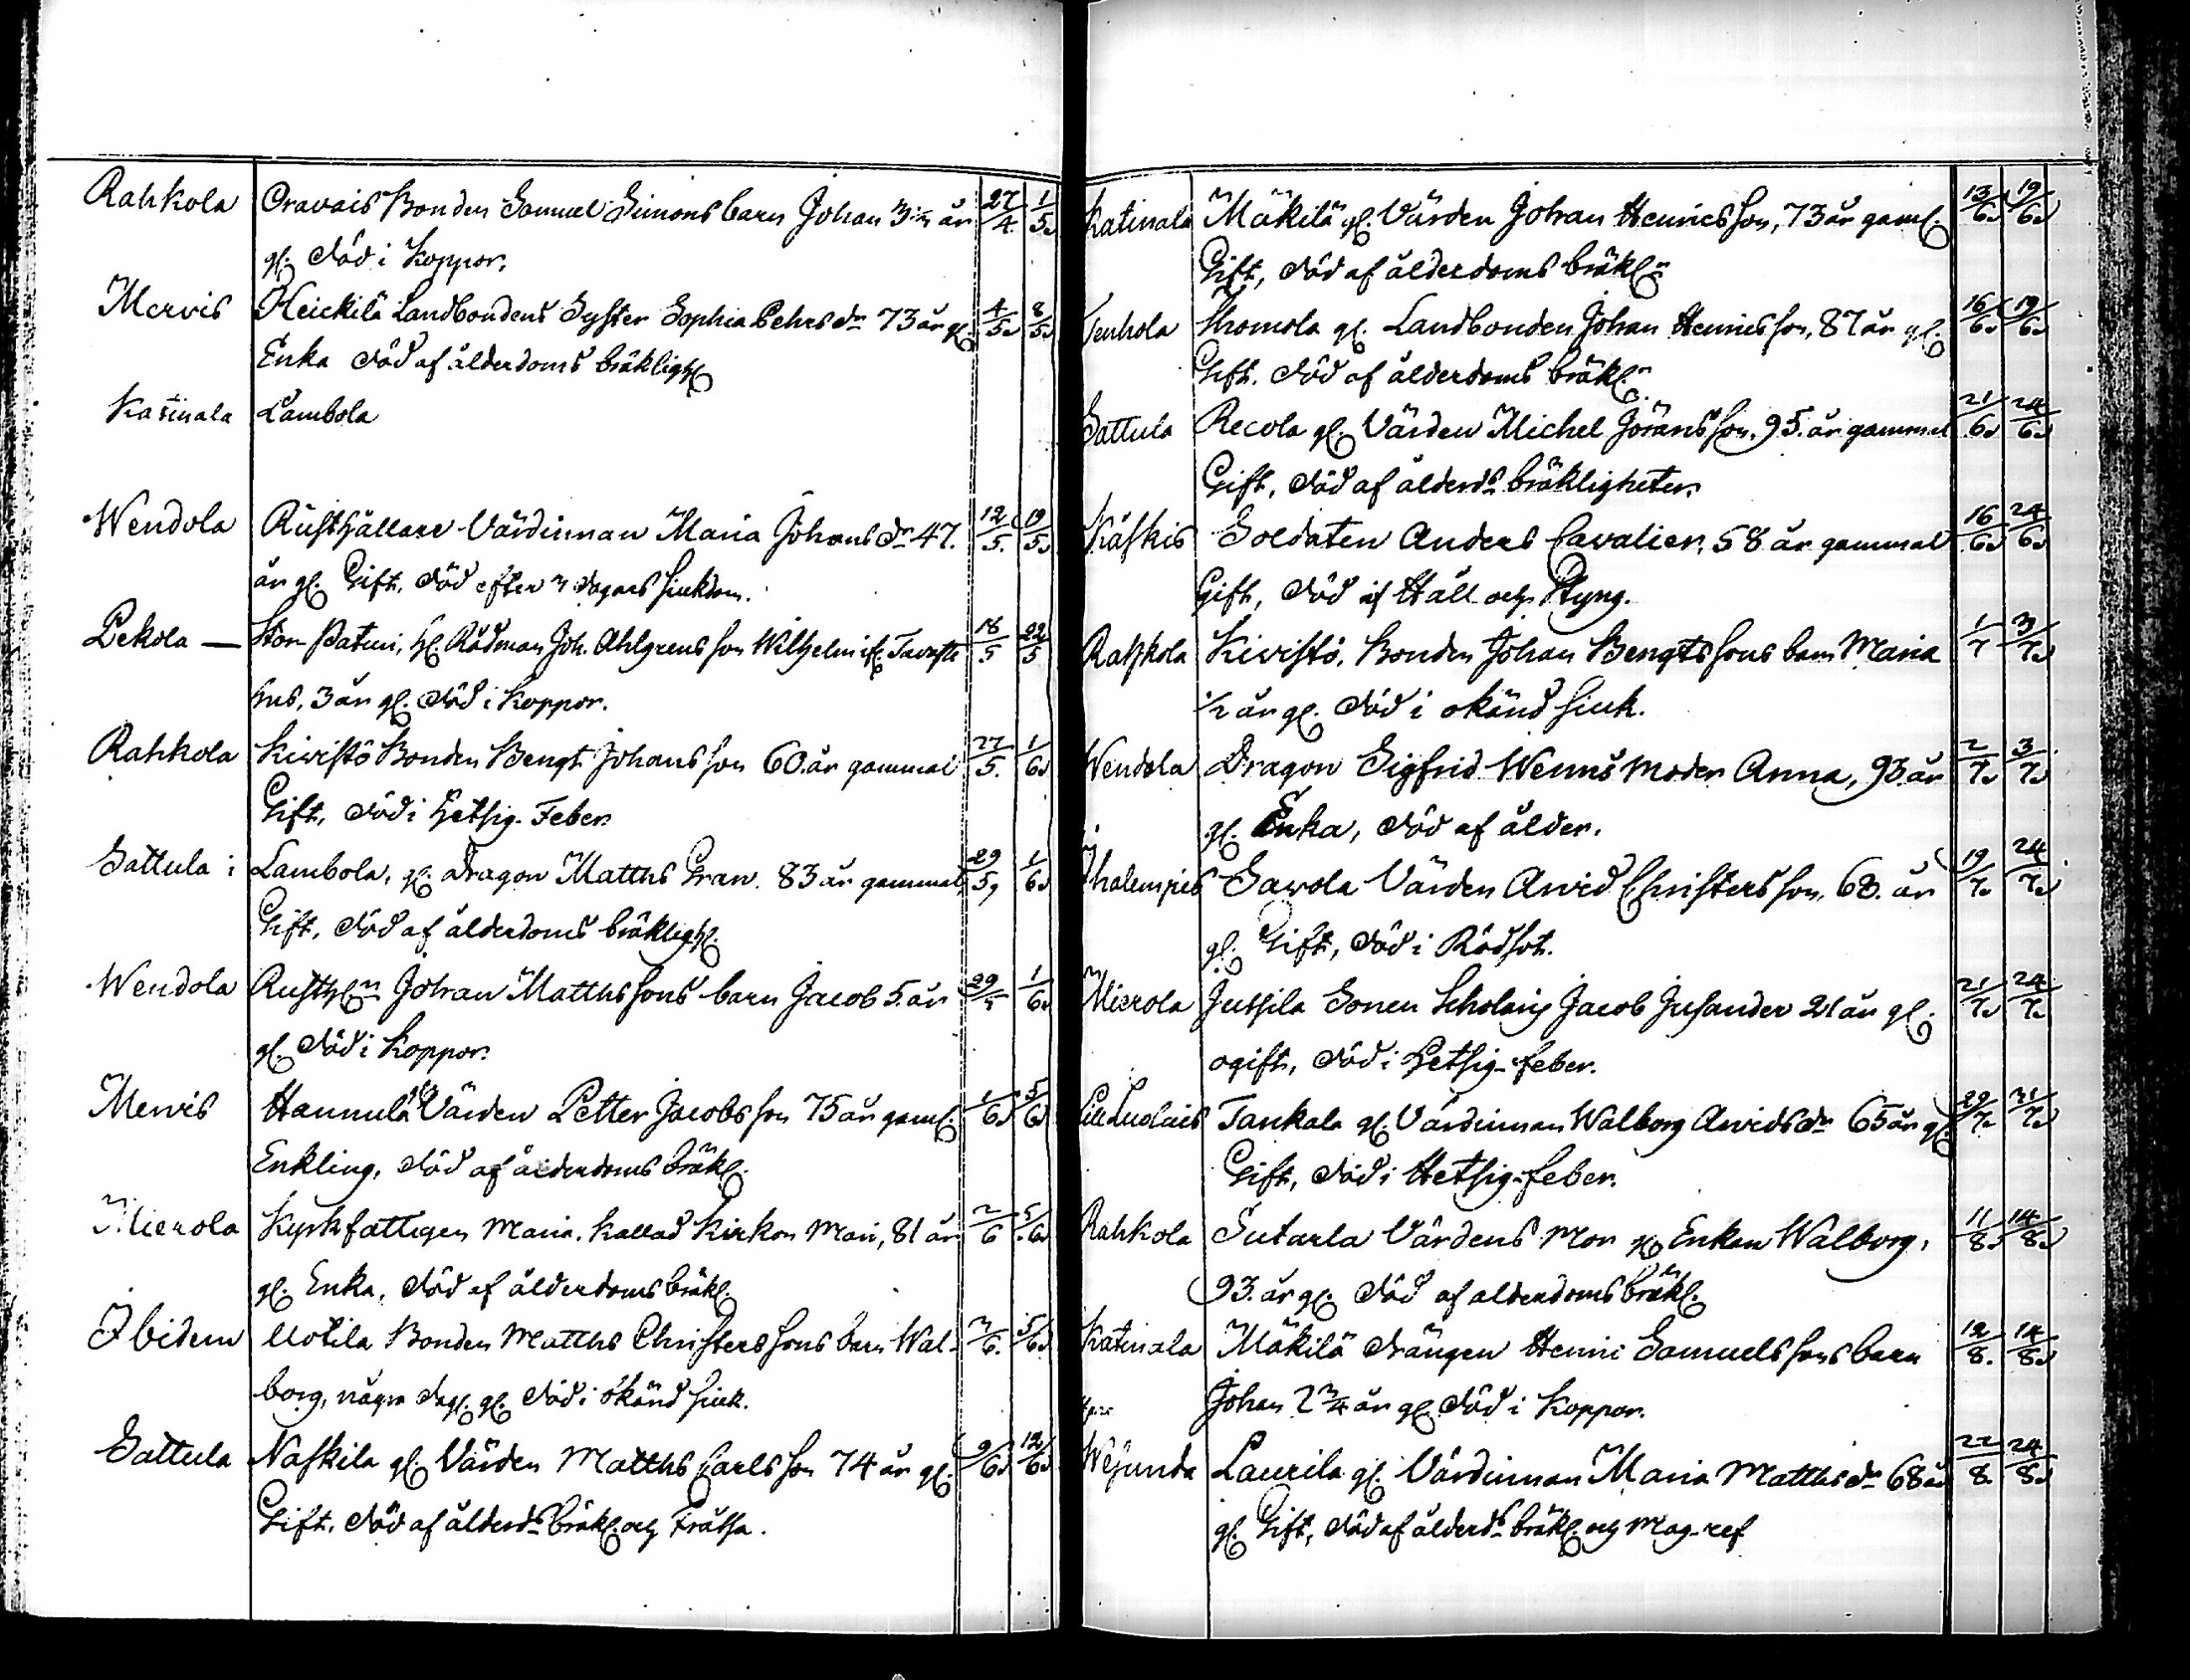 Rahkola Oravais Bonden Samuel Simons barn Johan 3 1/2 år 27/4. 1/5.
gl. död i Koppor.
Mervis Heickilä Landbondens Syster Sophia Pehrs dr 73 år gl. 4/5. 8/5.
Enka död af ålderdoms bräkligh.
Katinala Lambola
Wendola Rusthållare Värdinnan Maria Johans dr 47. 12/5. 19/5.
år gl. Gift. död efter 3 dagars siukdom.
Pekola — Stor Paturi, Hl. Rådman Joh. Ahlgrens son Wilhelm ifr. Tavaste 18/5 22/5
hus, 3 år gl. död i Koppor.
Rahkola Kivistö Bonden Bengt Johansson 60. år gammal 27/5. 1/6.
Gift, död i Hetsig Feber.
Sattula i Lambola, gl. Dragon Matths Gran. 83 år gammal 29/5, 1/6.
Gift, död af ålderdoms bräkligh.
Wendola Rusthn Johan Matthssons barn Jacob 5. år 29/5 1/6.
gl. död i Koppor.
Mervis Hannula Värden Petter Jacobsson 75 år gaml. 1/6. 5/6.
Enkling, död af ålderdoms bräkl.
Mierola Kyrkfattigen Maria. Kallad Kirkon Mari, 81 år 2/6 5/6.
gl. Enka, död af ålderdoms bräkl.
Ibidem Uotila Bonden Matths Christerssons barn Wal- 3/6. 5/6.
borg, några dag. gl. död i okänd siuk.
Sattula Naskila gl. Värden Matths Carlsson 74 år gl. 9/6. 12/6.
Gift. död af ålderds bräkl. och Fråssa.
Katinala Mäkilä gl. Värden Johan Henricsson, 73 år gaml. 13/6. 19/6.
Gift, död af ålderdoms bräkl.
Venhola Thomola gl. Landbonden Johan Henricsson, 87 år gl. 16/6. 19/6.
Gift. död af ålderdoms bräkl.
Sattula Recola gl. Värden Michel Jöransson, 95. år gammal 21/6. 24/6.
Gift, död af ålderds bräkligheter.
Käskis Soldaten Anders Cavalier, 58 år gammal 16/6. 24/6.
Gift, död af Håll och Styng.
Rahkola Kivistö, Bonden Johan Bengtssons barn Maria 1/7 3/7.
1/2 år gl. död i okänd siuk.
Wendola Dragon Sigfrid Wenns moder Anna, 93 år 2/7. 3/7.
gl. Enka, död af ålder.
Ihalempies Sawola Värden Arvid Christersson, 68. år 19/7. 24/7.
gl. Gift, död i Rödsot.
Mierola Jussila Sonen Scholaris Jacob Jusander 21 år gl. 21/7. 24/7.
ogift, död i Hetsig-feber.
Lill Luolais Tankala gl. Värdinnan Walborg Arvids dr 65 år gl. 29/7. 31/7.
Gift, död i Hetsig-feber.
Rahkola Sutarla Värdens Mor gl. Enkan Walborg, 11/8. 14/8.
93. år gl. död af ålderdoms bräkl.
Katinala Mäkilä drängen Henric Samuelssons barn 12/8. 14/8.
Johan 2 3/4 år gl. död i Koppor.
Wesunda Laurila gl. Värdinnan Maria Matths dr 68 år 22/8. 24/8.
gl. Gift, död af ålderds bräkl. och Mag-ref